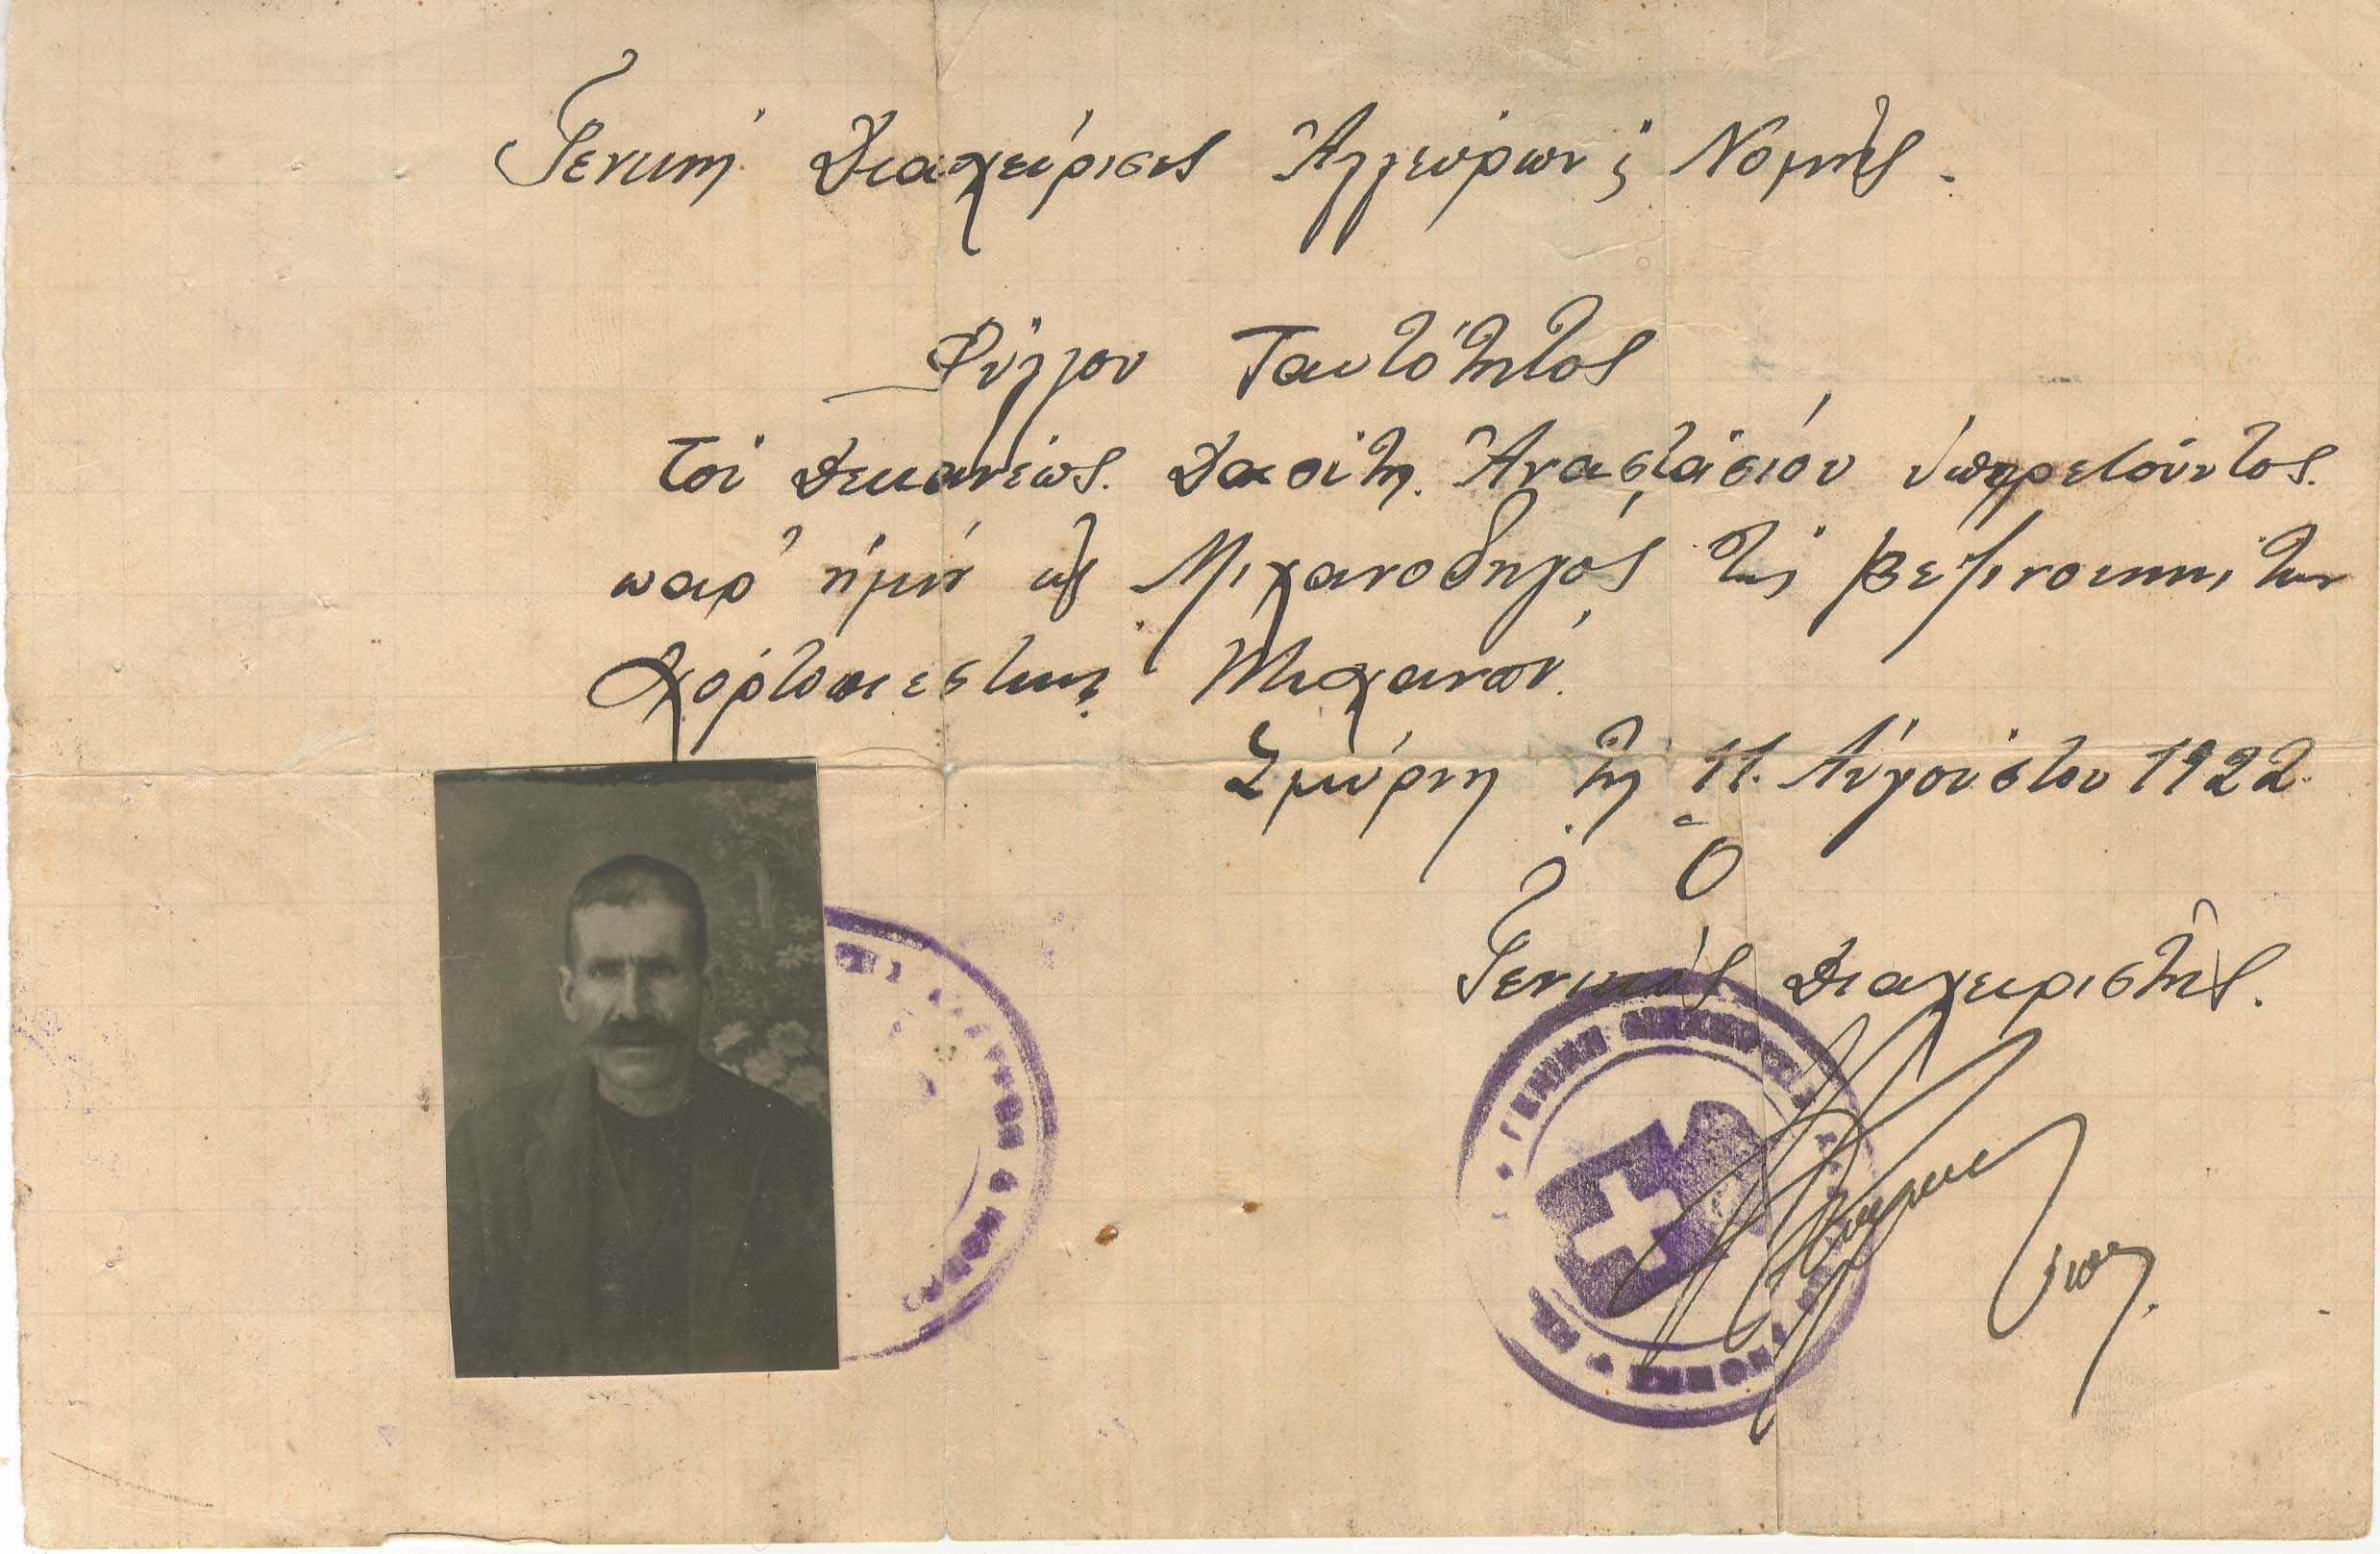 Γενική Διαχείρισις Ἀλεύρων & Νομῆς.
Φύλλον Ταυτότητος
τοῦ Δεκανέως Ἀναστασίου ὑπηρετοῦντος
παρ' ἡμῖν ὡς Μηχανοδηγός τῶν βενζινοκινήτων
Χορτοπιεστικῶν Μηχανῶν.
Σμύρνη τῇ 11 Αὐγούστου 1922
Ὁ
Γενικός Διαχειριστής.
ΓΕΝΙΚΗ ΔΙΑΧΕΙΡΙΣΙΣ